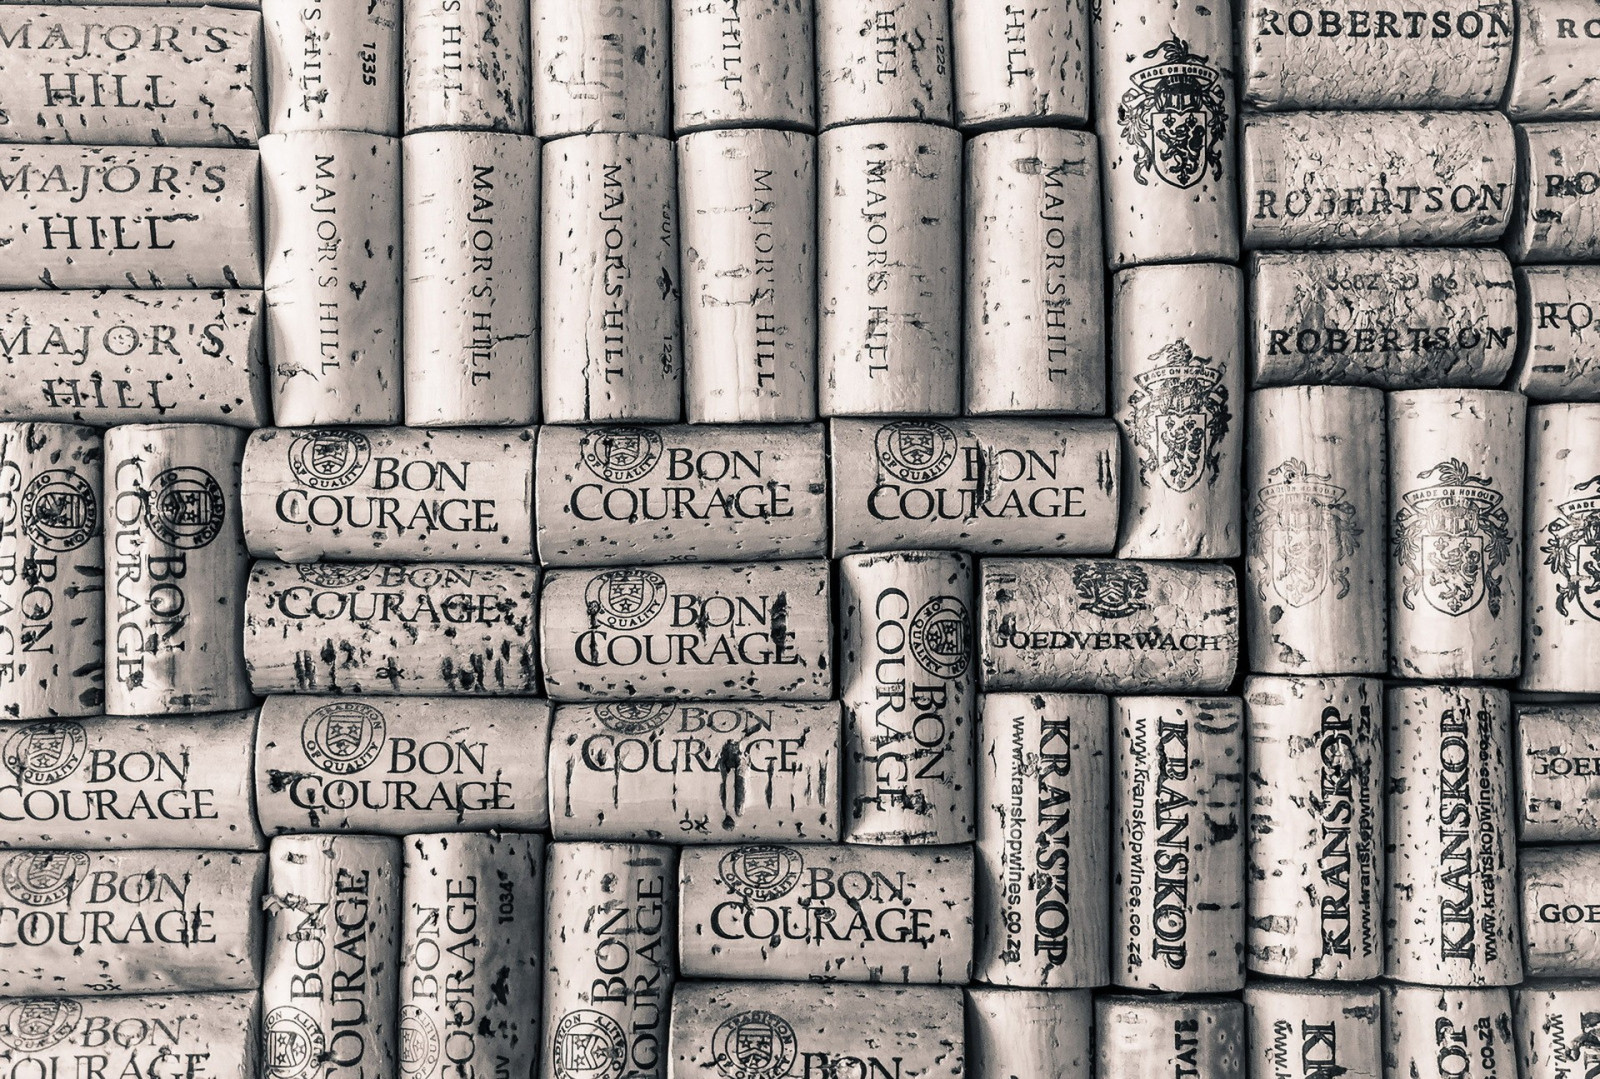 MAJOR'S
HILL
'S HILL
1335
HILL
HILL
HILL
1225
HILL
MADE ON HONOUR
ROBERTSON
RO
MAJOR'S
HILL
MAJOR'S HILL
MAJOR'S HILL
MAJOR'S HILL
1225
MAJOR'S HILL
MAJOR'S HILL
MAJOR'S HILL
ROBERTSON
RO
MAJOR'S
HILL
MADE ON HONOUR
ROBERTSON
RO
BON
COURAGE
TRADITION
BON
COURAGE
TRADITION
OF QUALITY
BON
COURAGE
TRADITION
OF QUALITY
BON
COURAGE
TRADITION
OF QUALITY
BON
COURAGE
MADE ON HONOUR
MADE ON HONOUR
MADE
BON
COURAGE
BON
COURAGE
BON
COURAGE
GOEDVERWACH
OF QUALITY
BON
COURAGE
TRADITION
OF QUALITY
BON
COURAGE
BON
COURAGE
KRANSKOP
www.kranskopwines.co.za
KRANSKOP
www.kranskopwines.co.za
KRANSKOP
www.kranskopwines.co.za
KRANSKOP
www.kranskopwines.co.za
GOE
OF QUALITY
BON
COURAGE
BON
COURAGE
BON
COURAGE
1034
BON
COURAGE
OF QUALITY
BON
COURAGE
GOE
BON
COURAGE
TRADITION
BON
TATE
www.k
KR
OP
co.za